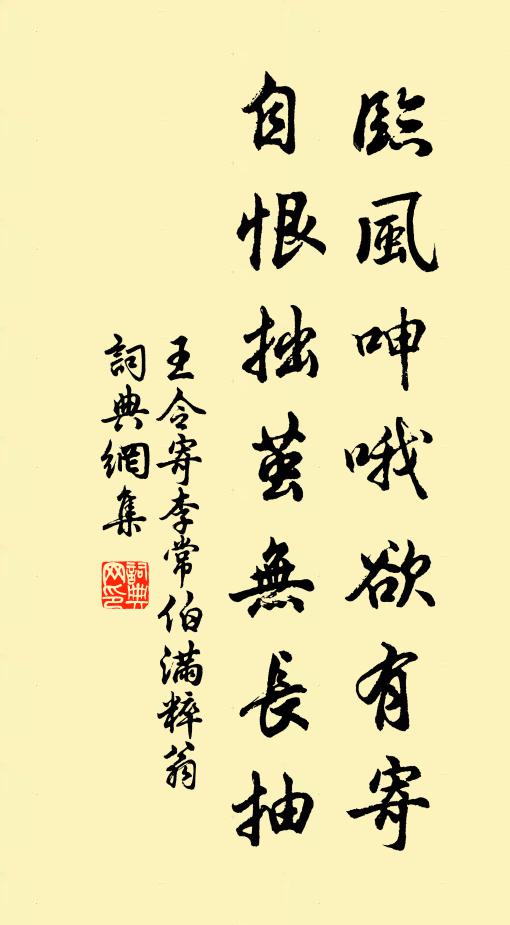 臨風呻哦欲有寄
自恨拙茧無長抽
王令寄李常伯滿粹翁
詞典網集
詞典
网印